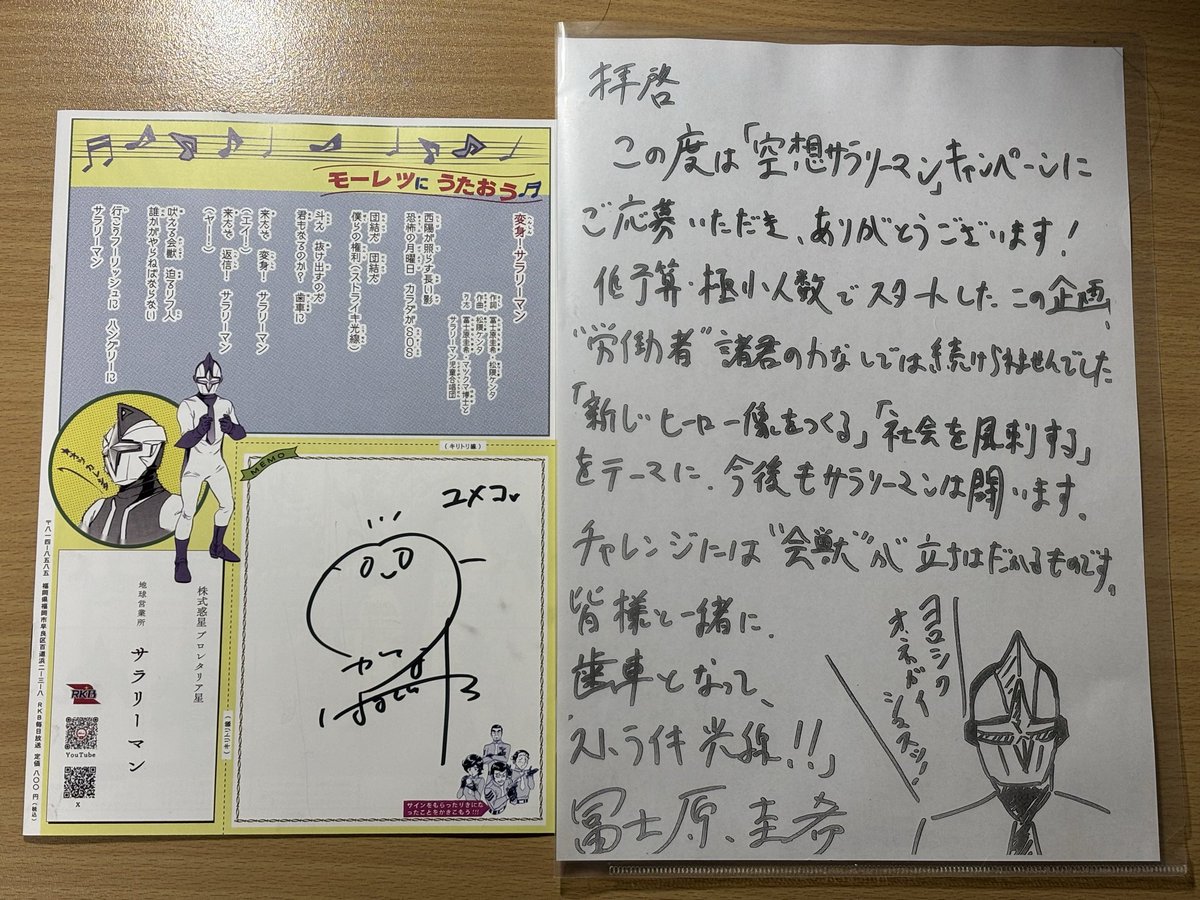 モーレツに うたおう
変身!サラリーマン
作詞 冨士原圭希・松隈ケンタ
作曲 松隈ケンタ
うた 冨士原圭希・マツクマ博士と
サラリーマン児童合唱団
西陽が照らす長い影
恐怖の月曜日 カラダがSOS
団結だ 団結だ
僕らの権利(ストライキ光線)
斗え 抜け出すのだ
君もなるのか? 歯車に
来たぞ 変身! サラリーマン
(エイ!)
来たぞ 返信! サラリーマン
(ヤー!)
吠える会獣 迫るリフ人
誰かがやらねばならない
行こうフーリッシュに ハングリーに
サラリーマン
(キリトリ線)
MEMO
ユメコ
サインをもらったりきにな
ったことをかきこもう!!!
(キリトリ線)
株式惑星 プロレタリア星
地球営業所
サラリーマン
RKB
YouTube
X
〒八一四-八五八五 福岡県福岡市早良区百道浜二-三-八 RKB毎日放送 定価 八〇〇円(税込)
拝啓
この度は「空想サラリーマン」キャンペーンに
ご応募いただき、ありがとうございます!
低予算・極小人数でスタートしたこの企画、
"労働者"諸君の力なしでは続けられませんでした
「新しいヒーロー像をつくる」「社会を風刺する」
をテーマに、今後もサラリーマンは闘います。
チャレンジには"会獣"が立ちはだかるものです。
皆様と一緒に、
歯車となって、
ストライキ光線!!」
冨士原圭希
ヨロシク
オネガイ
シマスッ!